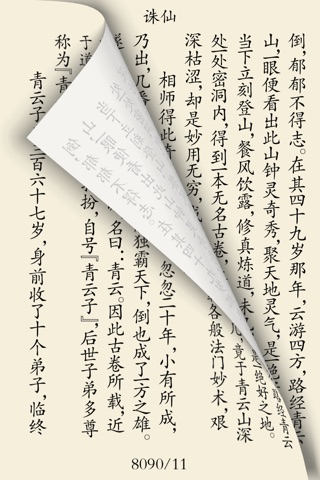 诛仙
倒，郁郁不得志。在其四十九岁那年，云游四方，路经青云
山，一眼便看出此山钟灵奇秀，聚天地灵气，是一绝好之地。
当下立刻登山，餐风饮露，修真炼道，未几，竟于青云山深
处一处密洞内，得到一本无名古卷，各般法门妙术，艰
深枯涩，却是妙用无穷，
相师得此奇忽忽二十年，小有所成，
乃出，几番独霸天下，倒也成了一方之雄。
遂名曰：青云。因此古卷所载，近
于道扮，自号『青云子』，后世子弟多尊
称为『青
青云子三百六十七岁，身前收了十个弟子，临终
8090/11